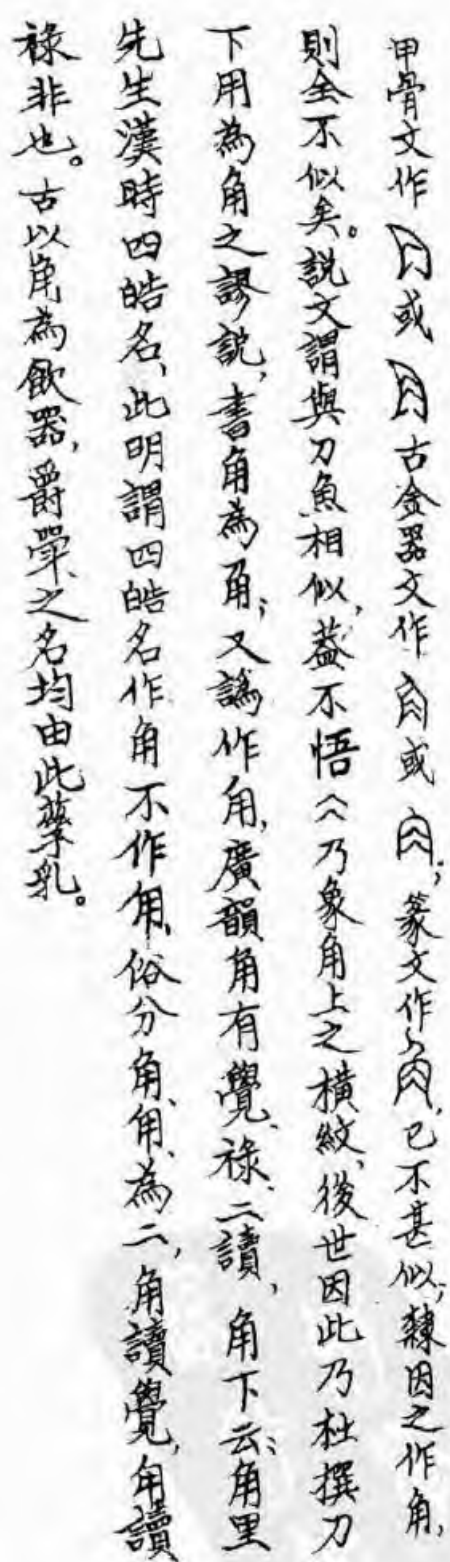 甲骨文作或古金器文作或;篆文作,已不甚似;隸因之作角,
則全不似矣。說文謂與刀魚相似,蓋不悟乃象角上之橫紋,後世因此乃杜撰刀
下用為角之謬說,書角為甪;又譌作角,廣韻角有覺、祿二讀,角下云:角里
先生漢時四皓名,此明謂四皓名作角不作甪,俗分角、甪、為二,角讀覺,甪讀
祿非也。古以角為飲器,爵斝之名均由此孳乳。